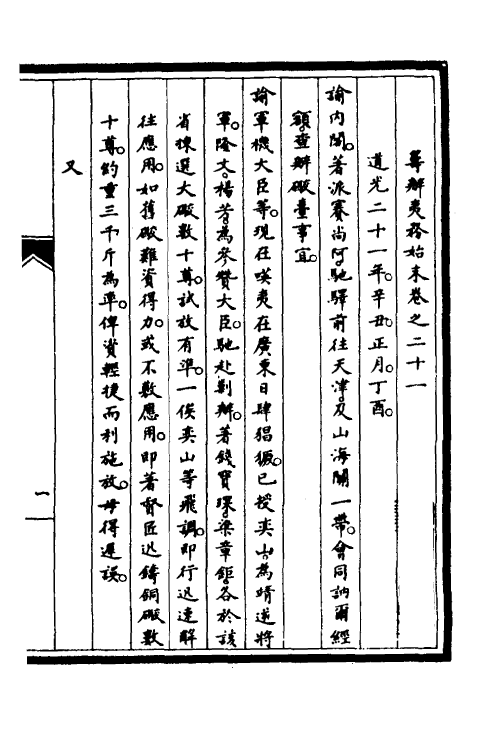 籌辦夷務始末卷之二十一
道光二十一年。辛丑。正月。丁酉。
諭內閣。著派賽尚阿。馳驛前往天津。及山海關一帶。會同訥爾經
額。查辦礮臺事宜。
諭軍機大臣等。現在㗸夷在廣東日肆猖獗。已授奕山。為靖逆將
軍。隆文。楊芳。為參贊大臣。馳赴勦辦。著錢寶琛。梁章鉅。各於該
省揀選大礮數十尊。試放有準。一俟奕山等飛調。即行迅速解
往應用。如舊礮難資得力。或不敷應用。即著督匠迅鑄銅礮數
十尊。約重三千斤為準。俾資輕捷而利施放。毋得遲誤。
又
一